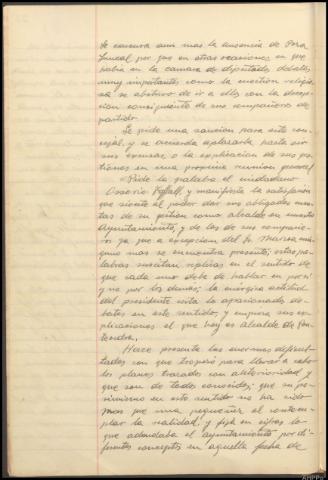 Se censura aun mas la ausencia de Poza
Juncal por que en otras ocasiones en que
habia en la camara de diputados debates
muy importantes como la cuestion religio-
sa se abstuvo de ir a ellos con la decep-
cion consiguiente de sus compañeros de
partido.
Se pide una sancion para este con-
cejal, y se acuerda aplazarla hasta oir
sus excusas o la explicacion de sus ges-
tiones en una proxima reunion general
Pide la palabra el ciudadano
Osorio Tafall, y manifiesta la satisfacion
que siente al poder dar sus obligadas cuen-
tas de su gestion como alcalde en nuestro
Ayuntamiento, y de las de sus compañe-
ros ya que a excepcion del Sr. nin-
guno mas se encuentra presente; estas pa-
labras suscitan replicas en el sentido de
que cada uno debe de hablar en por si
y no por los demas; la energica actitud
del presidente evita la apasionados de-
bates en este sentido, y empieza sus ex-
plicaciones el que hoy es alcalde de Pon-
tevedra.
Hace presente las enormes dificul-
tades con que tropezó para llevar a cabo
los planes trazados con anterioridad y
que son de todos conocidos; que su pe-
simismo en este sentido no ha sido
mas que una pequeñez al contem-
plar la realidad, y fija en cifras lo
que adeudaba el ayuntamiento por di-
ferentes conceptos en aquella fecha de
AHPPo